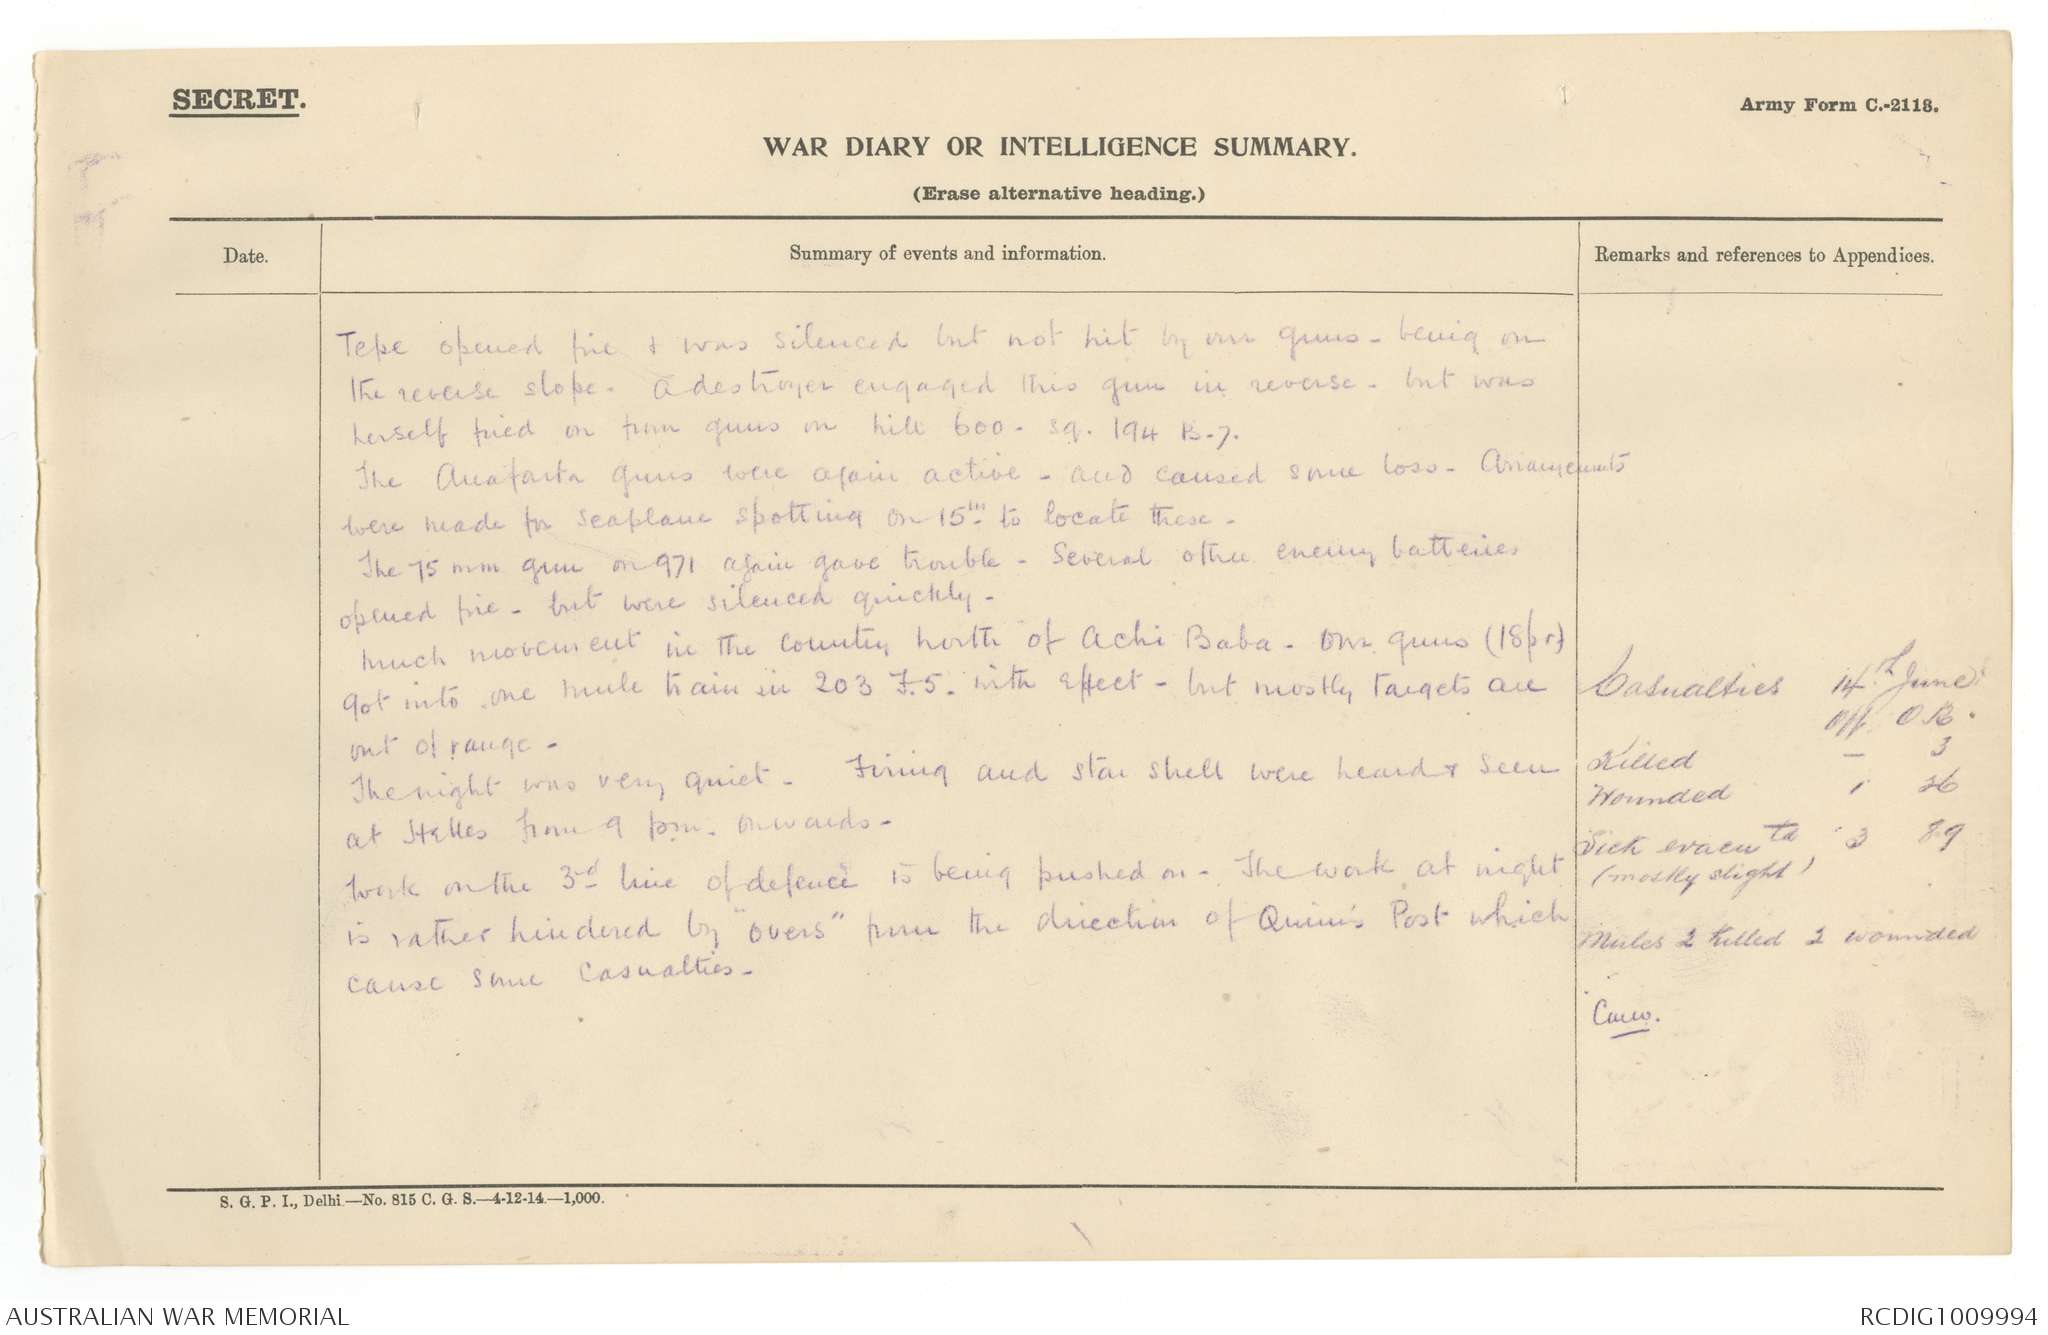 SECRET.
Army Form C.-2118.
WAR DIARY OR INTELLIGENCE SUMMARY.
(Erase alternative heading.)
Date.
Summary of events and information.
Remarks and references to Appendices.
Tepe opened fire & was silenced but not hit by our guns - being on
the reverse slope. A destroyer engaged this gun in reverse - but was
herself fired on from guns on hill 600 - sq. 194 B.7.
The Anafarta guns were again active - and caused some loss - Arrangements
were made for seaplane spotting on 15th to locate these -
The 75 mm gun on 971 again gave trouble - Several other enemy batteries
opened fire - but were silenced quickly -
Much movement in the country north of Achi Baba - Our guns (18pr)
got into one mule train in 203 F.5. with effect - but mostly targets are
out of range -
The night was very quiet - Firing and star shell were heard & seen
at Helles from 9 pm. onwards -
Work on the 3rd line of defence is being pushed on - The work at night
is rather hindered by "overs" from the direction of Quinn's Post which
cause some casualties -
Casualties 14th June
Off. O.R.
Killed — 3
Wounded 1 26
Sick evacutd 3 89
(mostly slight)
Mules 2 killed 2 wounded
S. G. P. I., Delhi.—No. 815 C. G. S.—4-12-14.—1,000.
AUSTRALIAN WAR MEMORIAL
RCDIG1009994